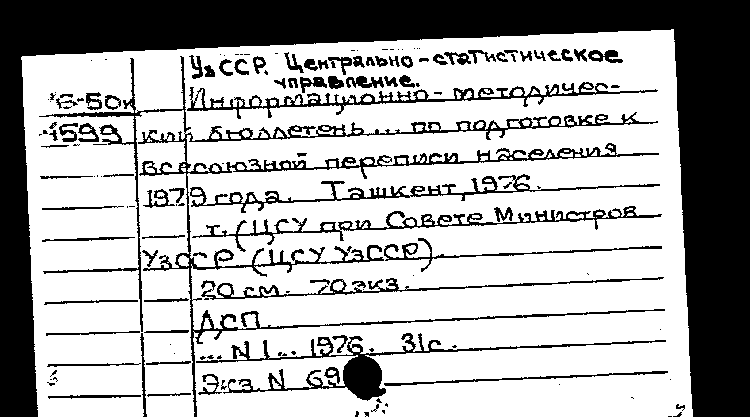 УзССР. Центрально-статистическое
управление.
Информационно-методичес-
кий бюллетень ... по подготовке к
всесоюзной переписи населения
1979 года. Ташкент, 1976.
т. (ЦСУ при Совете Министров
УзССР (ЦСУ УзССР).
20 см. 70 экз.
ДСП.
... N 1 ... 1976. 31 с.
Экз. N 69
1599